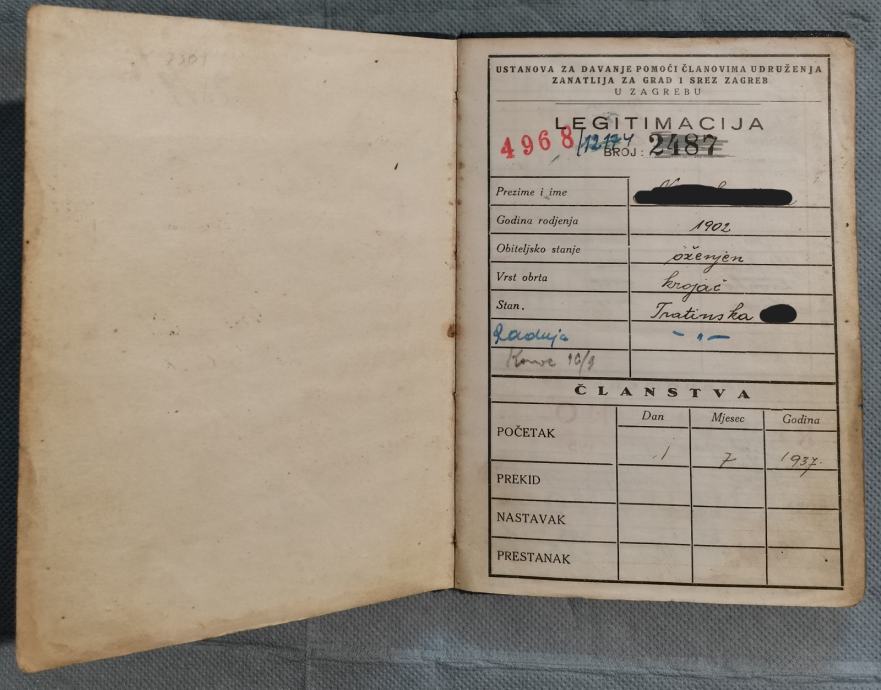 USTANOVA ZA DAVANJE POMOĆI ČLANOVIMA UDRUŽENJA
ZANATLIJA ZA GRAD I SREZ ZAGREB
U ZAGREBU
LEGITIMACIJA
4968
BROJ: 2487
Prezime i ime
Godina rodjenja 1902
Obiteljsko stanje oženjen
Vrst obrta krojač
Stan. Tratinska
Radnja - „ -
ČLANSTVA
Dan Mjesec Godina
POČETAK 1 7 1937.
PREKID
NASTAVAK
PRESTANAK